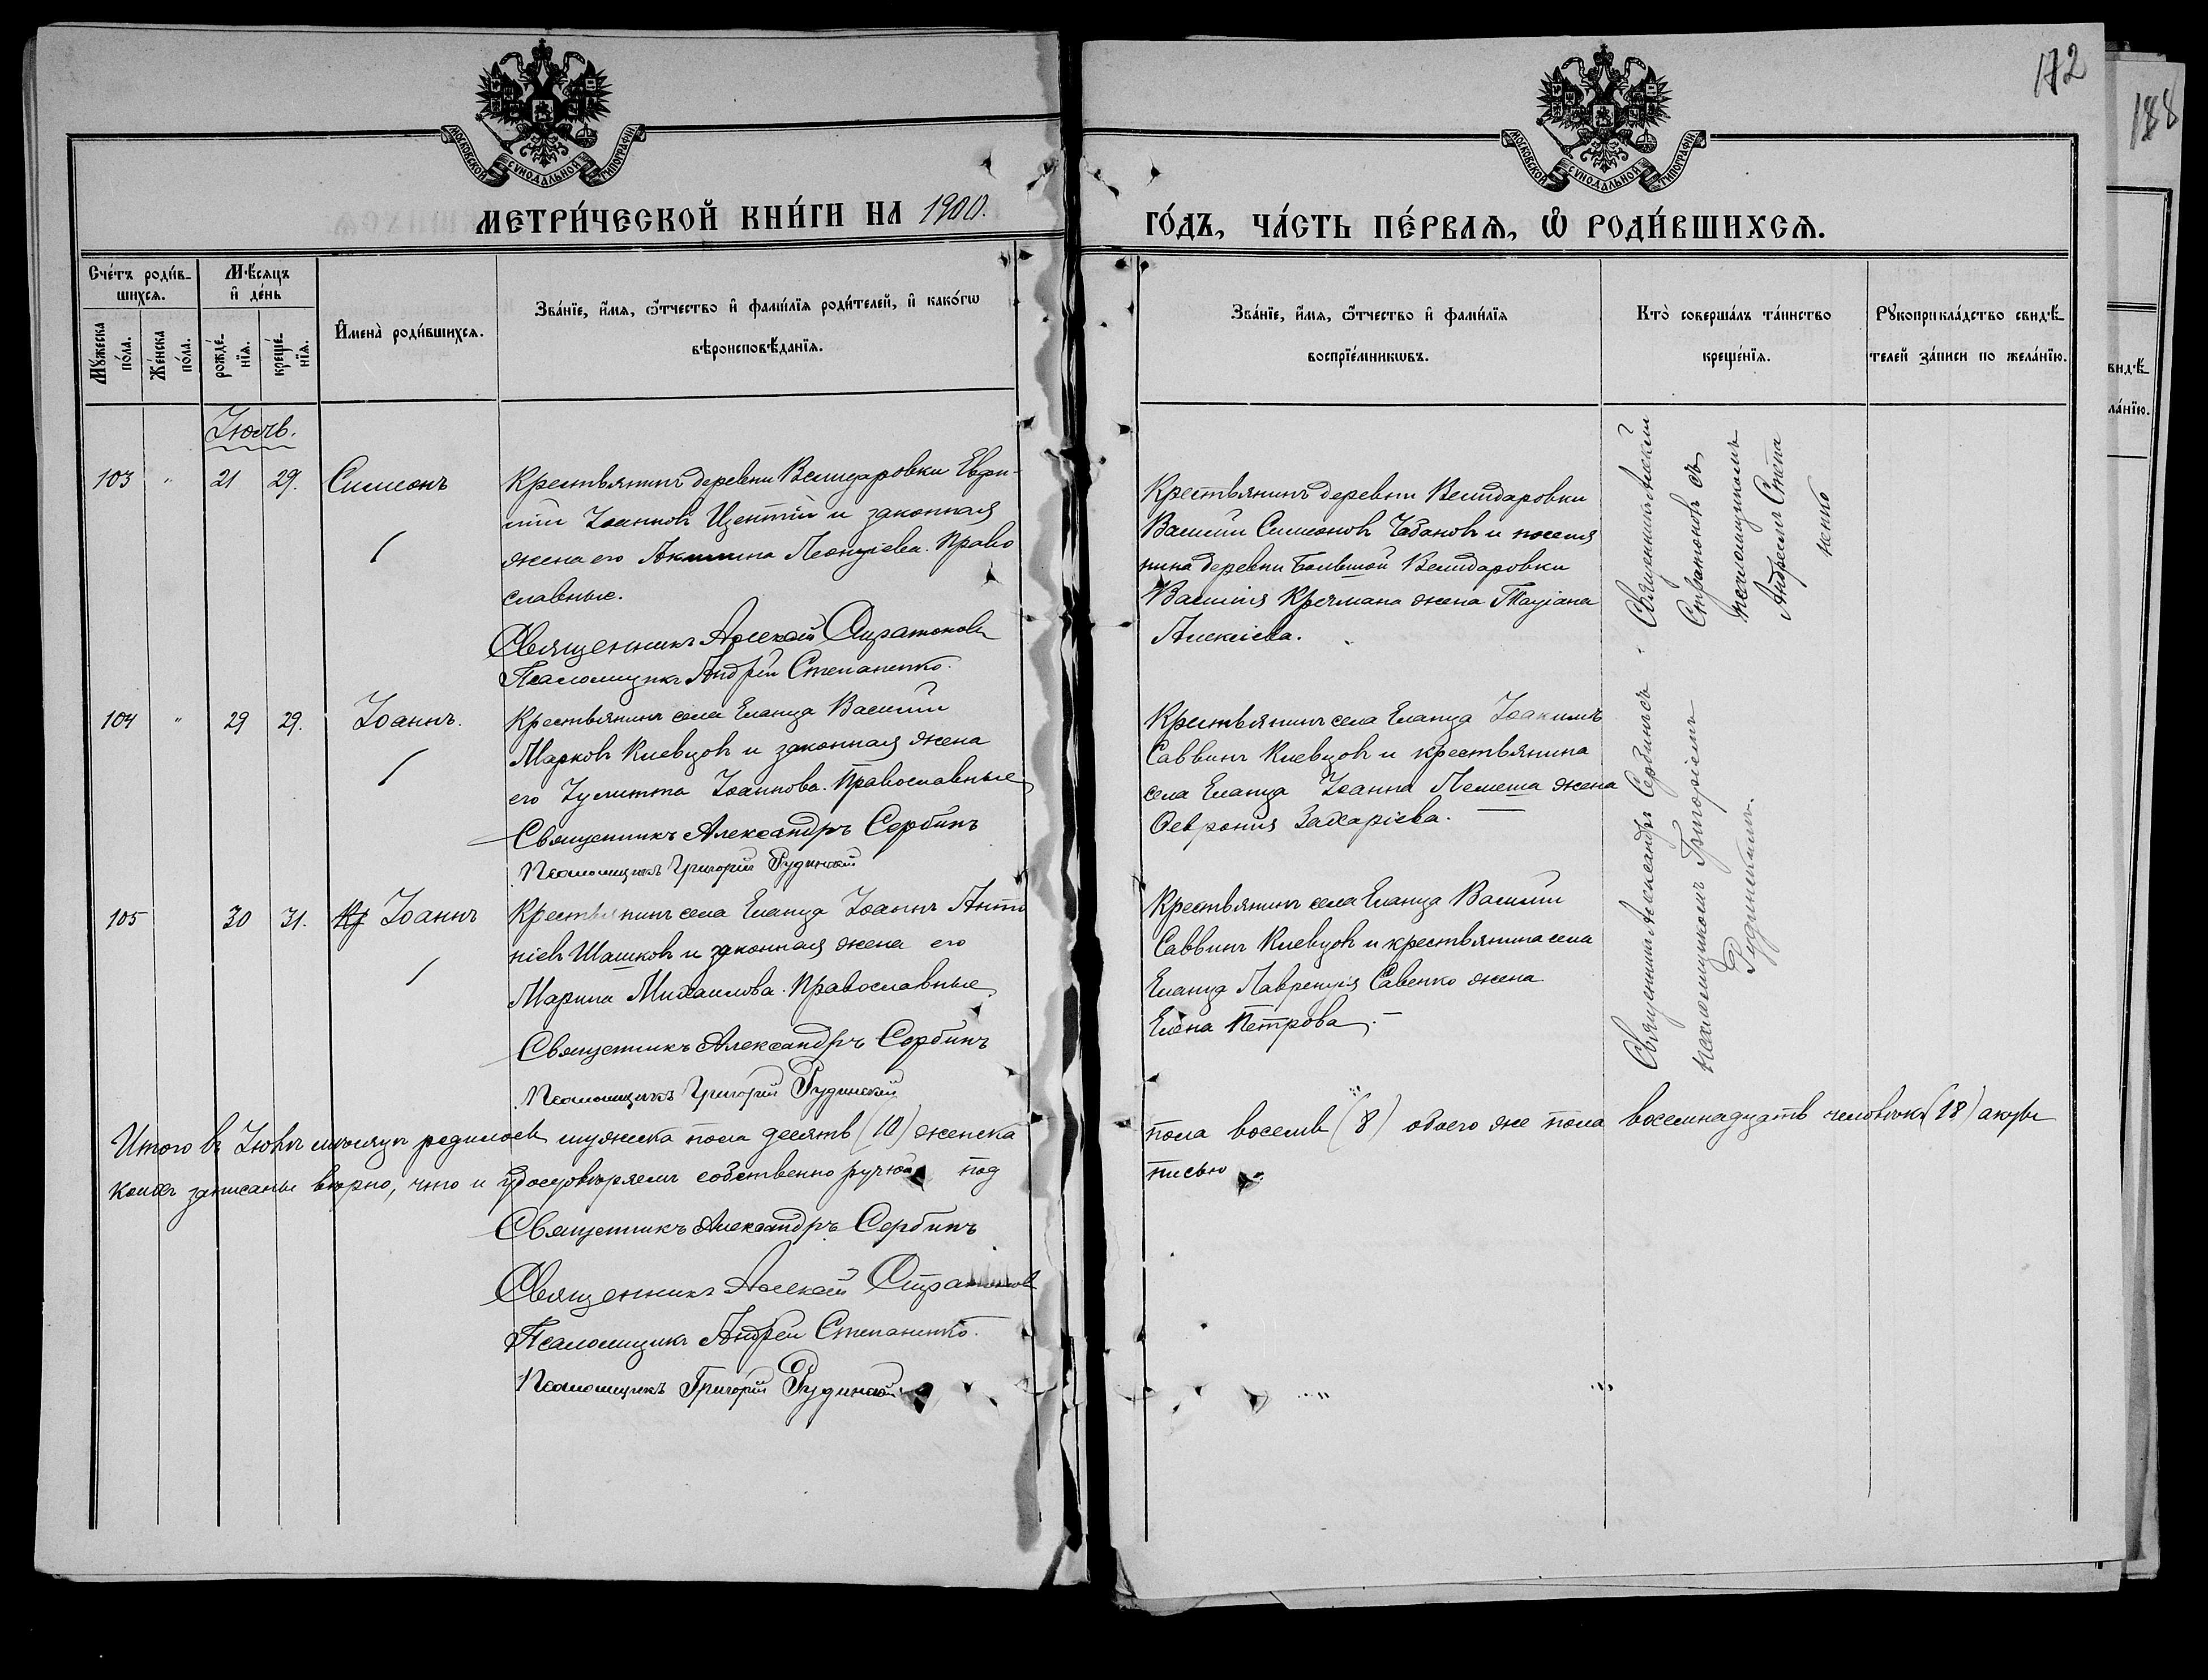 172
188
МОСКОВСКОЙ СѴНОДАЛЬНОЙ ТИПОГРАФІИ
МОСКОВСКОЙ СѴНОДАЛЬНОЙ ТИПОГРАФІИ
МЕТРИ́ЧЕСКОЙ КНИ́ГИ НА 1900.
ГО́ДЪ, ЧА́СТЬ ПЕ́РВАѦ, Ѡ҆ РОДИ́ВШИХСѦ.
Сче́тъ роди́в-
шихся.
Мѣ́сяцъ
и҆ де́нь
Мꙋ́жеска по́ла.
Же́нска по́ла.
рожде́-
нїя.
креще́-
нїя.
И҆мена̀ роди́вшихся.
Зва́нїе, и҆́мя, ѻ҆́тчество и҆ фами́лїя роди́телей, и҆ како́гѡ
вѣроисповѣ́данїя.
Зва́нїе, и҆́мя, ѻ҆́тчество и҆ фами́лїя
воспрїе́мникѡвъ.
Кто̀ соверша́лъ та́инство
креще́нїя.
Рꙋкоприкла́дство свидѣ́-
телей за́писи по жела́нїю.
видѣ́-
ла́нїю.
Іюль.
103 " 21 29. Симеонъ
Крестьянинъ деревни Велидаровки Евфи-
мій Іоанновъ и законная
жена его Акилина Леонтіева. Право
славные.
Священникъ Алексій Стратоновъ
Псаломщикъ Андрей Степаненко.
Крестьянинъ деревни Велидаровки
Василій Симеоновъ Чабановъ и поселя
нина деревни Большой Велидаровки
Василія Кречмана жена Татіана
Алексіева.
Священникъ Алексій
Стратоновъ съ
псаломщикомъ
Андреемъ Степа
ненко
104 " 29 29. Іоаннъ.
Крестьянинъ села Еланца Василій
Марковъ Киевцовъ и законная жена
его Іулитта Іоаннова. Православные
Священникъ Александръ Сербинъ
Псаломщикъ Григорій Рудинскій
Крестьянинъ села Еланца Іоакимъ
Саввинъ Киевцовъ и крестьянина
села Еланца Іоанна Лемеша жена
Феврония Захаріева.
Священникъ Александръ Сербинъ съ
псаломщикомъ Григоріемъ
Рудинскимъ.
105 30 31. Іоаннъ
Крестьянинъ села Еланца Іоаннъ Анто
ніевъ Шашковъ и законная жена его
Марина Михаилова. Православные
Священникъ Александръ Сербинъ
Псаломщикъ Григорій Рудинскій
Крестьянинъ села Еланца Василій
Саввинъ Киевцовъ и крестьянина села
Еланца Лаврентія Савенко жена
Елена Петрова.
Итого въ Іюлѣ мѣсяцѣ родилось мужеска пола десять (10) женска
пола восемь (8) обоего же пола восемнадцать человѣкъ (18) актъ
коихъ записаны вѣрно, что и удостовѣряемъ собственноручною под
писью.
Священникъ Александръ Сербинъ
Священникъ Алексій Стратоновъ
Псаломщикъ Андрей Степаненко.
Псаломщикъ Григорій Рудинскій